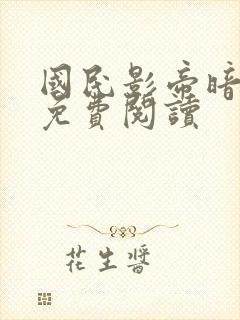 國民影帝暗
免費閱讀
花生醬